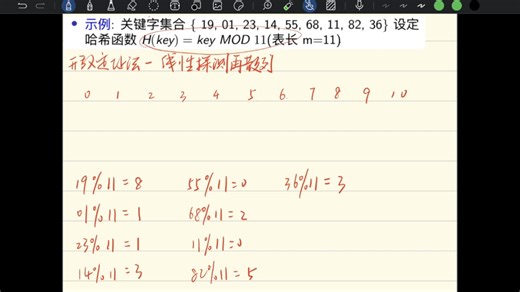 示例: 关键字集合 { 19, 01, 23, 14, 55, 68, 11, 82, 36} 设定
哈希函数 H(key) = key MOD 11(表长 m=11)
开放定址法 - 线性探测再散列
0 1 2 3 4 5 6 7 8 9 10
19%11=8 55%11=0 36%11=3
01%11=1 68%11=2
23%11=1 11%11=0
14%11=3 82%11=5